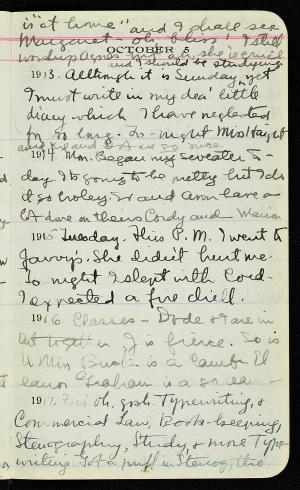 is "at home" and I shall see
Margaret - oh bliss! I shd
worship Agnes but oh, she is cruel
OCTOBER 5 and I should be studying
1913. Although it is Sunday, yet
I must write in my dea' little
diary which I have neglected
for so long. To-night Miss
and and are so nice.
1914 Mon. Began my sweater to-
day. It's going to be pretty but I do
it so holey. and have a
lot done on theirs Cordy and Marion
1915 Tuesday. This P.M. I went to
Jarvy's. She didn't hurt me.
To night I slept with Cord.
I expected a fire drill.
1916 Classes - Dode & are in
at J is fierce. So is
U Miss Buck is a lamb. El
eanor Graham is a so
1917. Fri oh, gosh. Typewriting, &
Commercial Law, Book-keeping,
Stenography, Study, & more Type-
writing. Got a puff in Stenog, tho